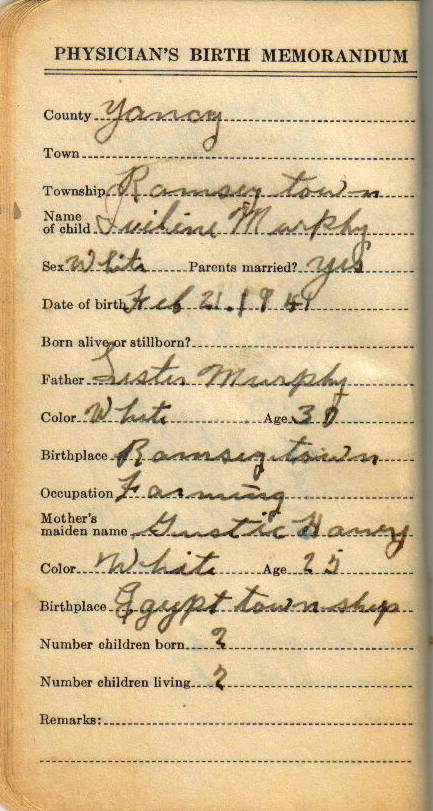 PHYSICIAN'S BIRTH MEMORANDUM
County Yancy
Town
Township Ramsey town
Name of child Murphy
Sex White Parents married? yes
Date of birth Feb 21. 1941
Born alive or stillborn?
Father Lister Murphy
Color White Age 30
Birthplace Ramsey town
Occupation Farming
Mother's maiden name Gustie
Color White Age 25
Birthplace Egypt township
Number children born 2
Number children living 2
Remarks: